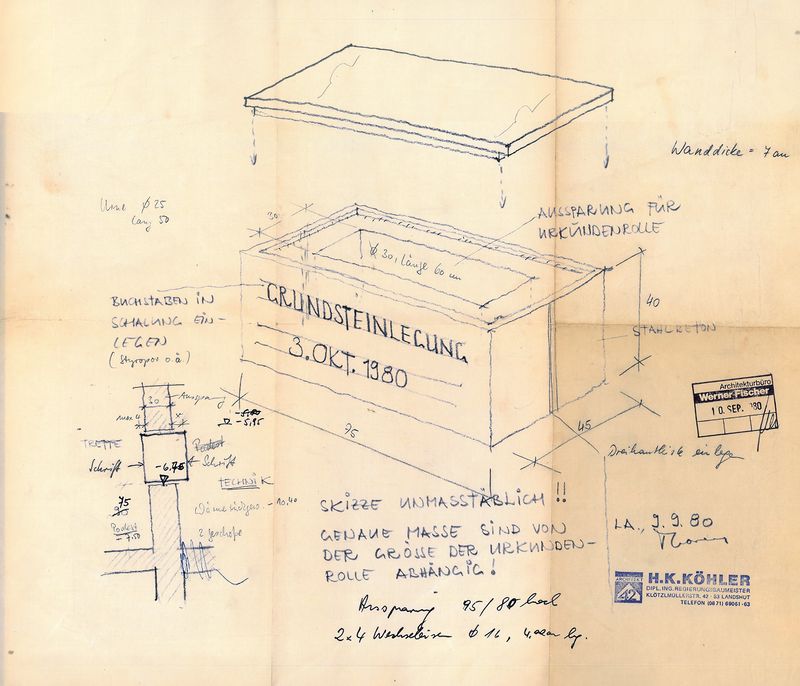 Wanddicke = 7 cm
Urne Ø 25
lang 50
AUSSPARUNG FÜR
URKUNDENROLLE
30
Ø 30, Länge 60 cm
BUCHSTABEN IN
SCHALUNG EIN-
LEGEN
(Styropor o.ä.)
GRUNDSTEINLEGUNG
3. OKT. 1980
40
STAHLBETON
45
95
Dreikantleiste einlegen
30
Aussparung
-5.95
TREPPE
Podest
Schrift
-6.75
Schrift
TECHNIK
75
Podest
-7.50
-10.40
2 geschoße
Architekturbüro
Werner Fischer
10. SEP. 80
SKIZZE UNMASSTÄBLICH!!
GENAUE MASSE SIND VON
DER GRÖSSE DER URKUNDEN-
ROLLE ABHÄNGIG!
LA., 9.9.80
ARCHITEKT
H.K.KÖHLER
DIPL. ING. REGIERUNGSBAUMEISTER
KLÖTZLMÜLLERSTR. 42 · 83 LANDSHUT
TELEFON (0871) 69061-63
Aussparung 95/80 hoch
2x4 Wechseleisen Ø 16, 4.00m lg.